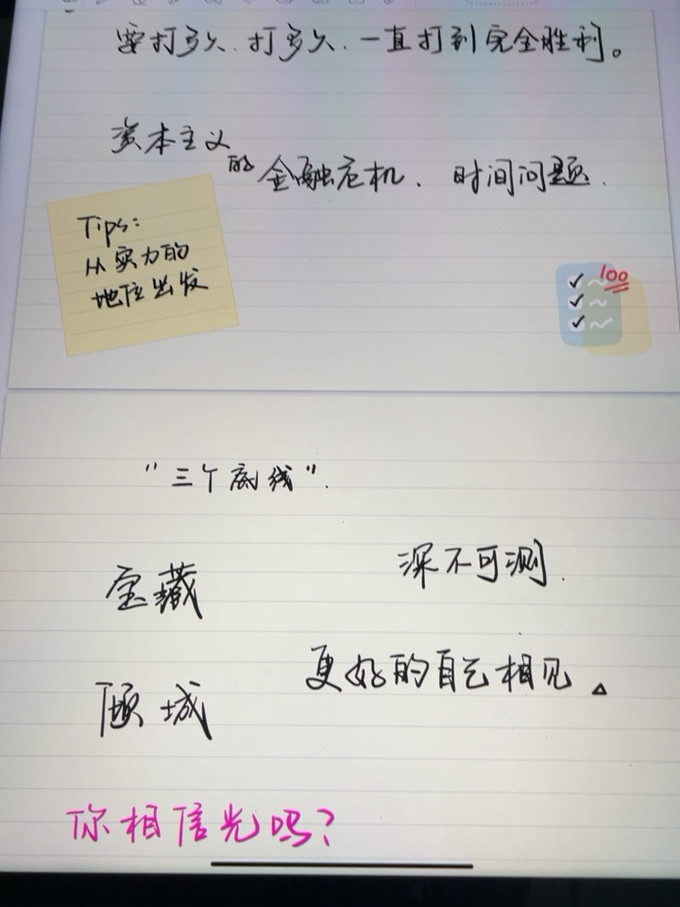 要打多久、打多久、一直打到完全胜利。
资本主义的金融危机、时间问题.
Tips:
从实力的
地位出发
100
"三个离线".
宝藏
深不可测.
更好的自己相见。
倾城
你相信光吗?